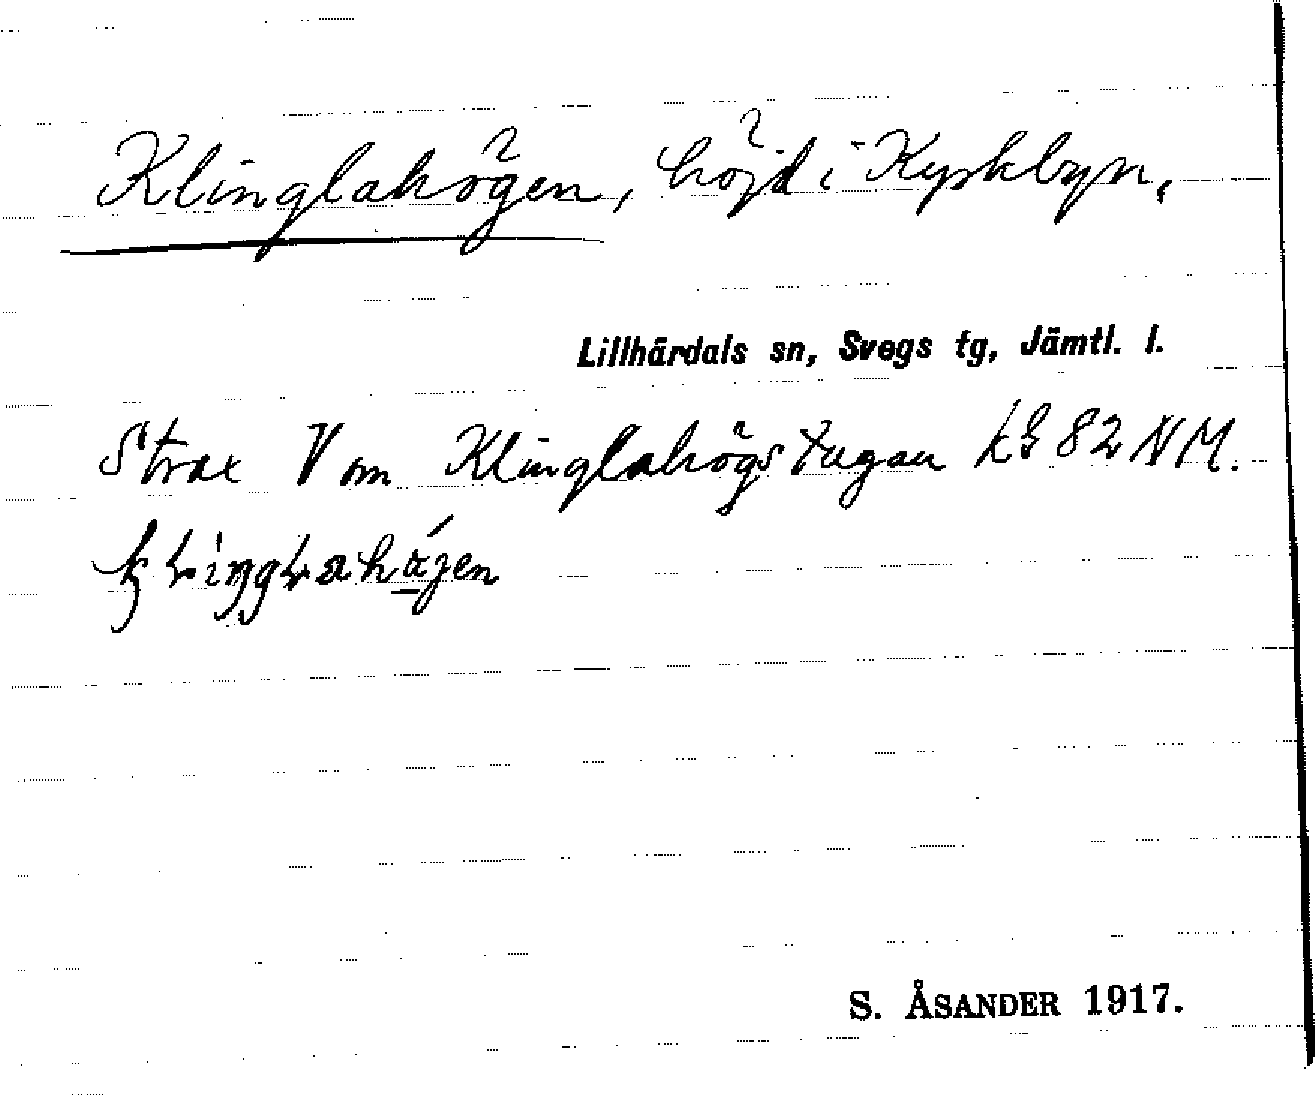 Klinglahögen, höjd i Kyrkbyn,
Lillhärdals sn, Svegs tg, Jämtl. l.
Strax V om Klinglahögstugan kB 82 NM.
S. ÅSANDER 1917.